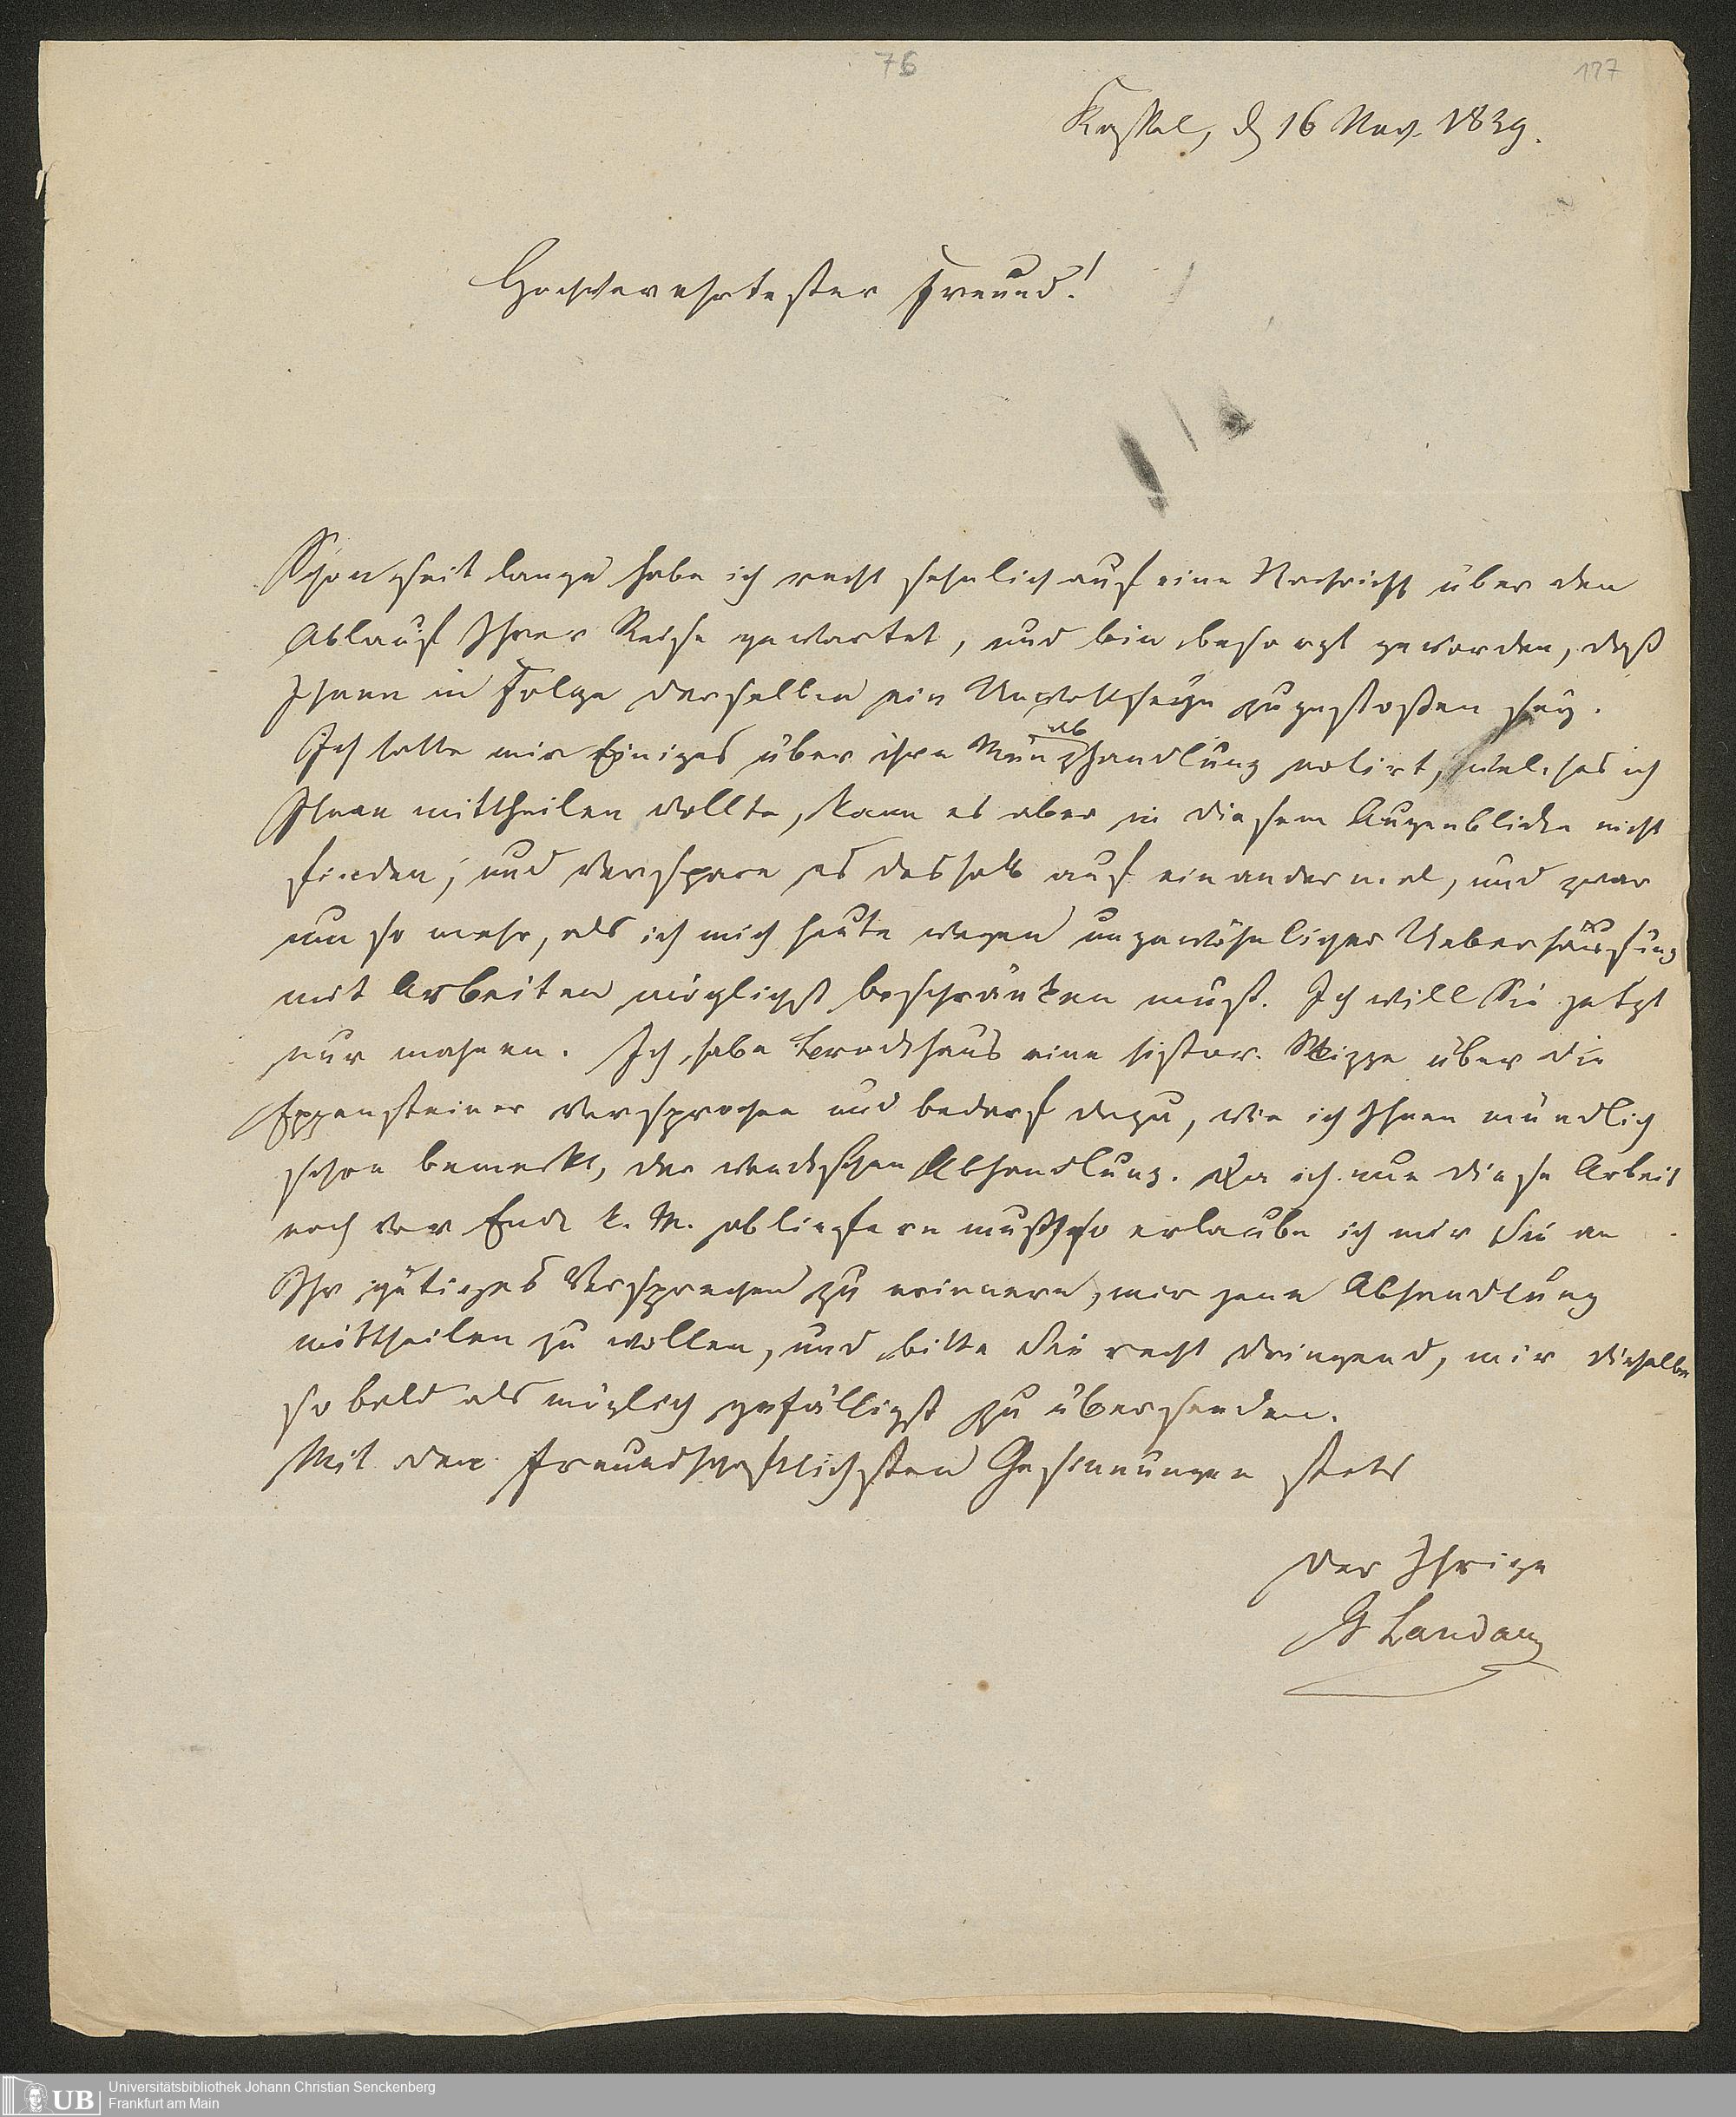 76
177
Kassel, d 16 Nov. 1839.
Hochverehrtester Freund!
Schon seit lange habe ich recht sehnlich auf eine Nachricht über den
Ablauf Ihrer Reise gewartet, und bin besorgt geworden, daß
Ihnen in Folge derselben ein Unwohlseyn zugestoßen sey.
Ich hatte mir Einiges über ihre Münzabhandlung notirt, welches ich
Ihnen mittheilen wollte, kann es aber in diesem Augenblicke nicht
finden, und verspare es deshalb auf ein andermal, und zwar
um so mehr, als ich mich heute wegen ungewöhnlicher Ueberhäufung
mit Arbeiten möglichst beschränken muß. Ich will Sie jetzt
nur mahnen. Ich habe Brockhaus eine histor. Skizze über die
Eppensteiner versprochen und bedarf dazu, wie ich Ihnen mündlich
schon bemerkt, der wenckschen Abhandlung. Da ich nun diese Arbeit
noch vor Ende k. M. abliefern muß, so erlaube ich mir Sie an
Ihr gütiges Versprechen zu erinnern, mir jene Abhandlung
mittheilen zu wollen, und bitte Sie recht dringend, mir dieselbe
so bald als möglich gefälligst zu übersenden.
Mit den freundschaftlichsten Gesinnungen stets
der Ihrige
G Landau
UB Universitätsbibliothek Johann Christian Senckenberg
Frankfurt am Main